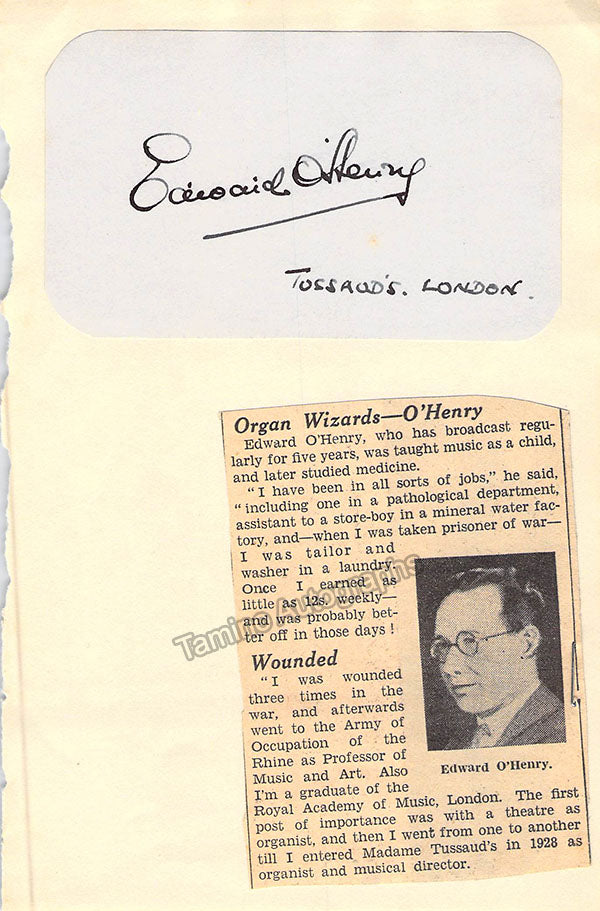 Edward O'Henry
TUSSAUD'S. LONDON.
Organ Wizards—O'Henry
Edward O'Henry, who has broadcast regu-
larly for five years, was taught music as a child,
and later studied medicine.
"I have been in all sorts of jobs," he said,
"including one in a pathological department,
assistant to a store-boy in a mineral water fac-
tory, and—when I was taken prisoner of war—
I was tailor and
washer in a laundry.
Once I earned as
little as 12s. weekly—
and was probably bet-
ter off in those days!
Wounded
"I was wounded
three times in the
war, and afterwards
went to the Army of
Occupation of the
Rhine as Professor of
Music and Art. Also
I'm a graduate of the
Royal Academy of Music, London. The first
post of importance was with a theatre as
organist, and then I went from one to another
till I entered Madame Tussaud's in 1928 as
organist and musical director.
Edward O'Henry.
Tamino Autographs